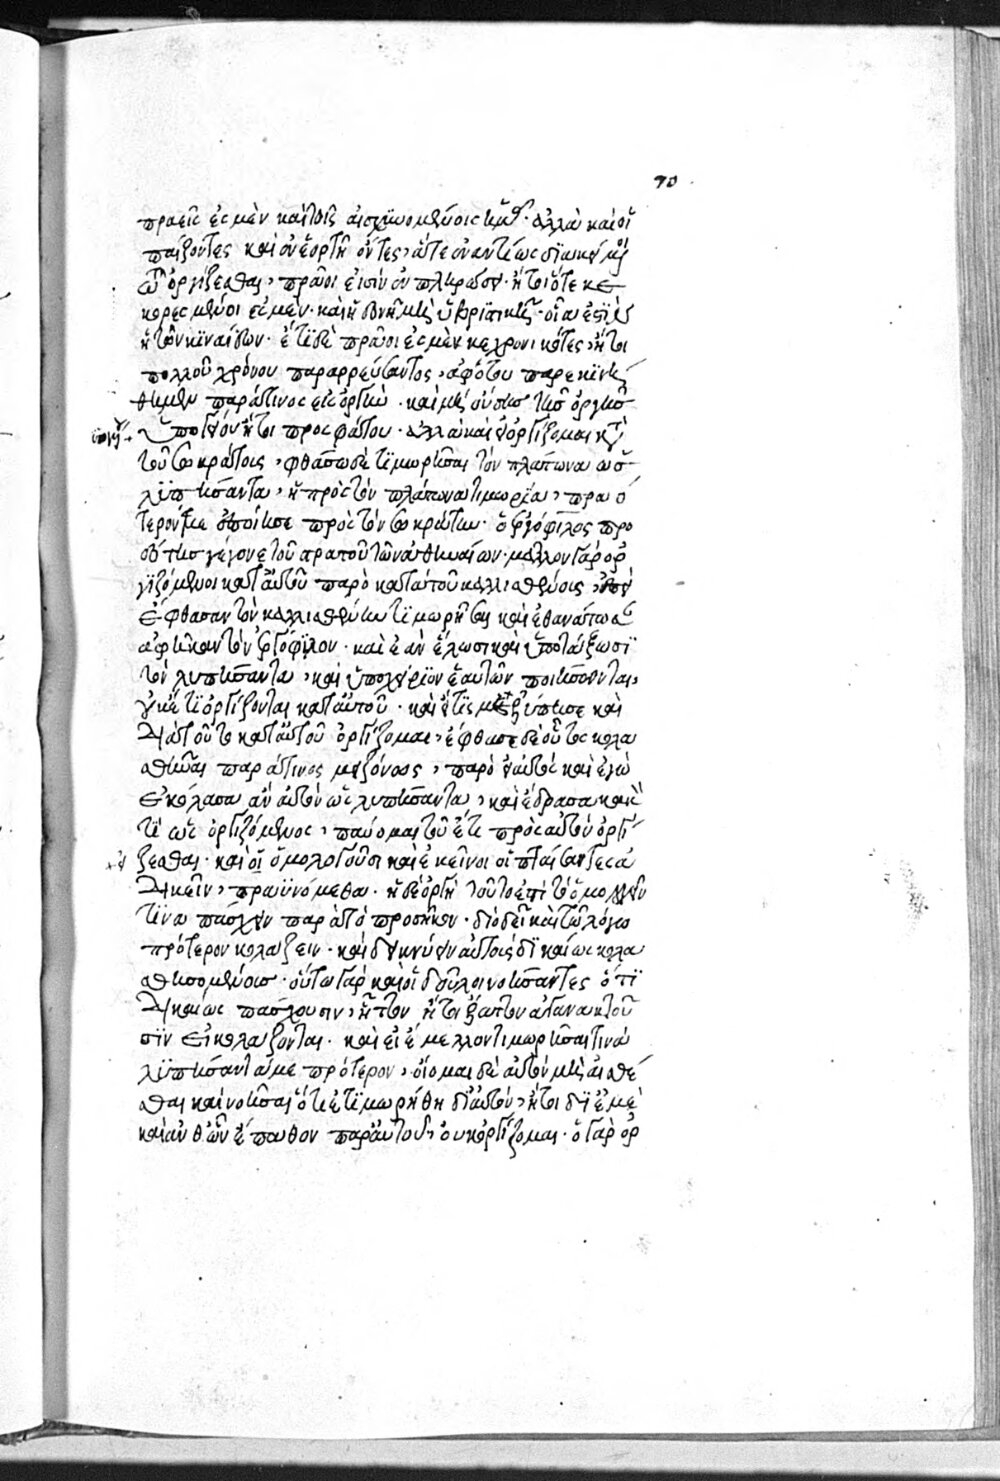 70
πραεῖς ἐσμὲν καὶ τοῖς αἰσχυνομένοις ἡμᾶς· ἀλλὰ καὶ οἱ
παίζοντες καὶ ἐν ἑορτῇ ὄντες, ἅτε ἐναντίως διακείμενοι
τῷ ὀργίζεσθαι, πρᾶοι εἰσὶν ἐν πληρώσει· ἤτοι ὅτε κε
κορεσμένοι ἐσμέν· καὶ ἡδονῇ μὴ ὑβριστικῇ· οἵα ἐστὶν
ἡ τῶν κιναίδων· ἔτι δὲ πρᾶοι ἐσμὲν κεχρονικότες, ἤτοι
πολλοῦ χρόνου παραρρεύσαντος, ἀφ' ὅτου παρεκινή
θημεν παρά τινος εἰς ὀργήν· καὶ μὴ οὔσης τῆς ὀργῆς
ὑπογύου ἤτοι προσφάτου· ἀλλὰ καὶ ὀργίζομαι
τοῦ Σωκράτους, φθάσω δὲ τιμωρῆσαι τὸν πλάτωνα ὡς
λυπήσαντα, ἡ πρὸς τὸν πλάτωνα τιμωρία, πραό
τερόν με ἐποίησε πρὸς τὸν Σωκράτην· ὁ ἐργόφιλος προ
δότης γέγονε τοῦ στρατοῦ τῶν ἀθηναίων· μᾶλλον γὰρ ὀρ
γιζόμενοι κατ' αὐτοῦ παρὸ κατὰ τοῦ καλλισθένους,
ἔφθασαν τὸν καλλισθένην τιμωρῆσαι καὶ ἐθανάτωσαν
ἀφῆκαν τὸν ἐργόφιλον· καὶ ἐὰν ἕλωσι καὶ ὑποτάξωσι
τὸν λυπήσαντα, καὶ ὑποχείριον ἑαυτῶν ποιήσονται,
οὐκ ἔτι ὀργίζονται κατ' αὐτοῦ· καὶ εἴ τις με ἐλύπησε καὶ
διὰ τοῦτο κατ' αὐτοῦ ὀργίζομαι, ἔφθασε δὲ οὗτος κολα
σθῆναι παρά τινος μειζόνως, παρὸ αὐτὸς καὶ ἐγὼ
ἐκόλασα ἂν αὐτὸν ὡς λυπήσαντα, καὶ ἔδρασα κακόν
τι ὡς ὀργιζόμενος, παύομαι τοῦ ἔτι πρὸς αὐτὸν ὀργί
ζεσθαι· καὶ οἱ ὁμολογοῦσι καὶ ἐκεῖνοι οἱ πταίσαντες ἀ
δικεῖν, πραϋνόμεθα· ἡ δὲ ὀργὴ τοῦτο ἐπὶ τὸ ὁμολογεῖν
τινὰ πάσχειν παρὰ τὸ προσῆκον· διὸ δεῖ καὶ τῷ λόγῳ
πρότερον κολάζειν· καὶ δεικνύειν αὐτοὺς δικαίως κολα
σθησομένους· οὕτω γὰρ καὶ οἱ δοῦλοι νοήσαντες ὅτι
δικαίως πάσχουσιν, ἧττον ἤτοι ἔλαττον ἀγανακτοῦ
σιν εἰ κολάζονται· καὶ εἰ ἐμέλλον τιμωρῆσαι τινὰ
λυπήσαντά με πρότερον, οἴομαι δὲ αὐτὸν μὴ αἰσθέ
σθαι καὶ νοῆσαι ὅτι ἐτιμωρήθη δι' αὐτόν, ἤτοι δι' ἐμὲ
καὶ ἀνθ' ὧν ἔπαθον παρ' αὐτοῦ, οὐκ ὀργίζομαι· ὁ γὰρ ὀρ